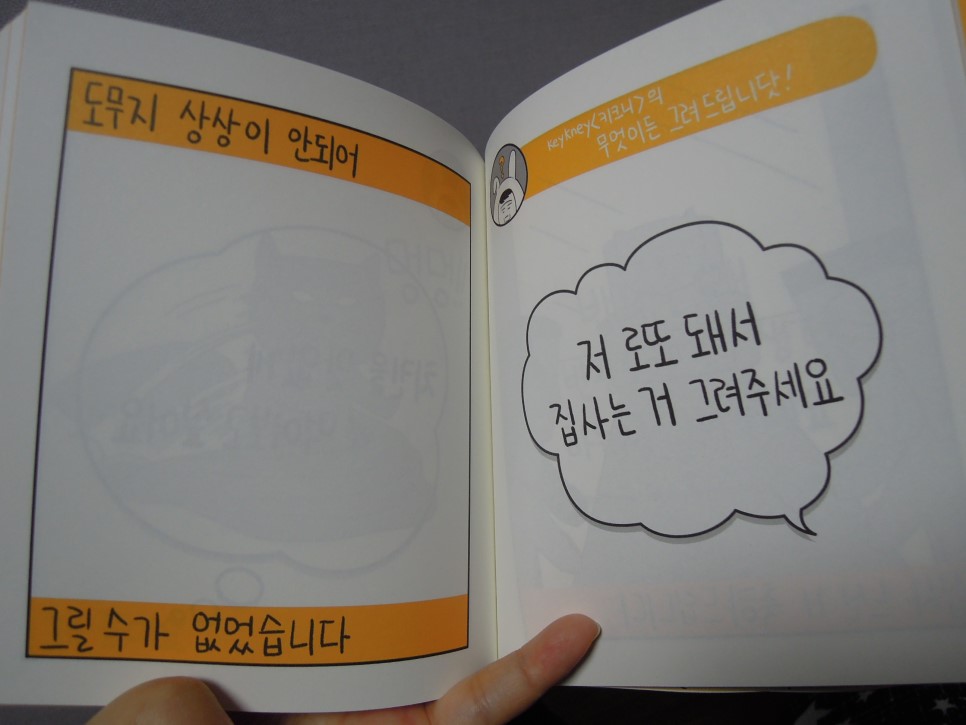 도무지 상상이 안되어
그릴 수가 없었습니다
keykney<키크니>의
무엇이든 그려드립니닷!
저 로또 돼서
집사는 거 그려주세요